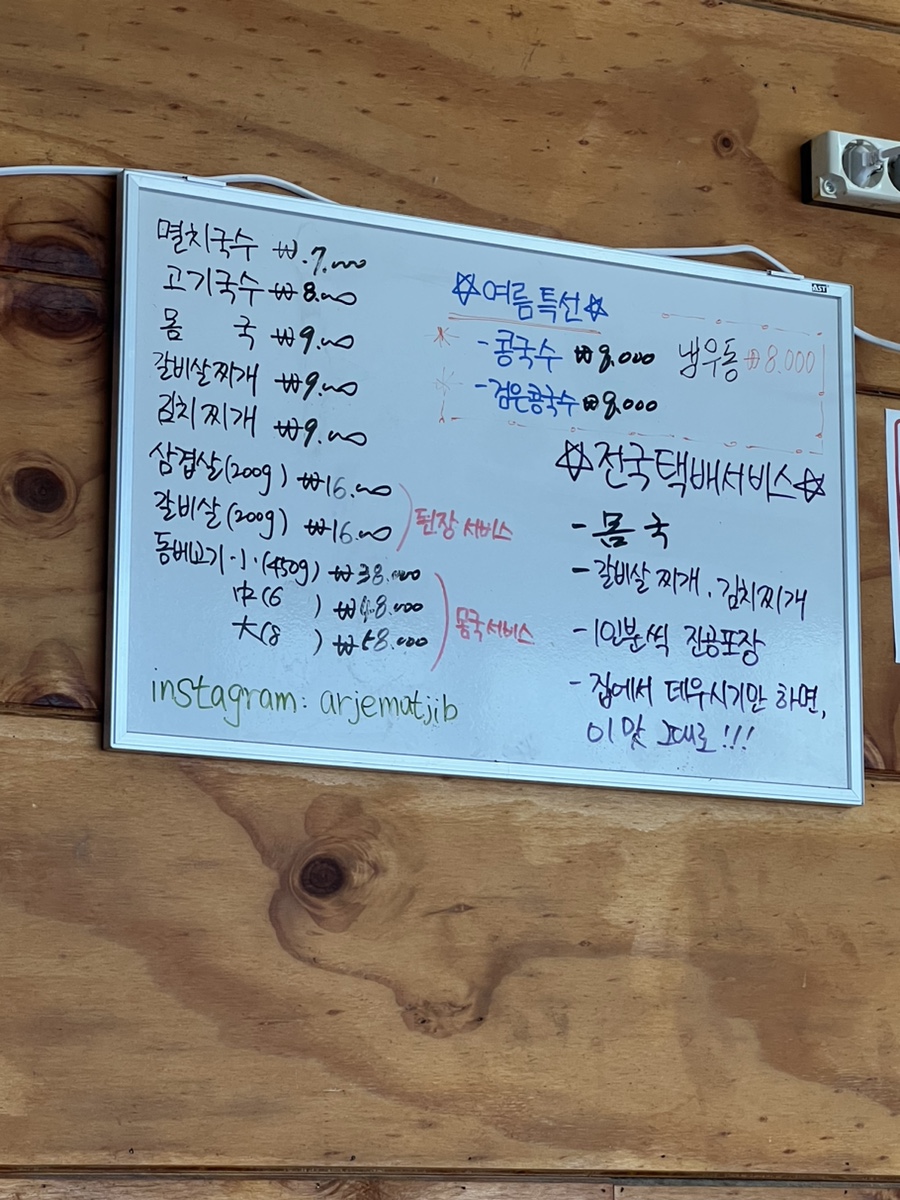 멸치국수 ₩.7.000
고기국수 ₩8.000
몸 국 ₩9.000
갈비살찌개 ₩9.000
김치찌개 ₩9.000
삼겹살(200g) ₩16.000
갈비살(200g) ₩16.000
된장서비스
돔베고기·小·(450g) ₩38.000
中(6 ) ₩48.000
大(8 ) ₩58.000
몸국서비스
instagram: arjematjib
☆여름특선☆
-콩국수 ₩8.000
-검은콩국수 ₩9.000
냄우동 ₩8.000
☆전국택배서비스☆
-몸국
-갈비살찌개. 김치찌개
-1인분씩 진공포장
-집에서 데우시기만 하면,
이맛 그대로!!!
AST